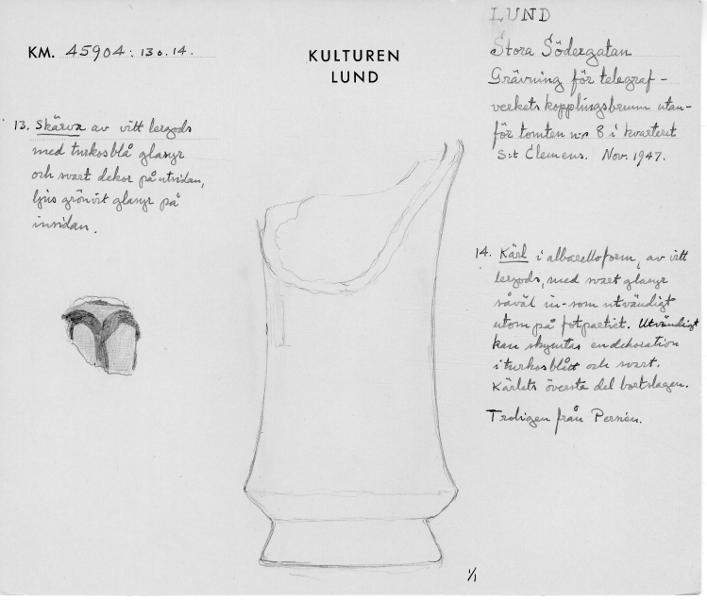 KM. 45904: 13 o. 14.
KULTUREN
LUND
LUND
Stora Södergatan
Grävning för telegraf-
verkets kopplingsbrunn utan-
för tomten n:r 8 i kvarteret
S:t Clemens. Nov. 1947.
13. Skärva av vitt lergods
med turkosblå glasyr
och svart dekor på utsidan,
ljus grönvit glasyr på
insidan.
14. Kärl i albarelloform, av vitt
lergods, med svart glasyr
såväl in- som utvändigt
utom på fotpartiet. Utvändigt
kan skymtas en dekoration
i turkosblått och svart.
Kärlets översta del bortslagen.
Troligen från Persien.
1/1